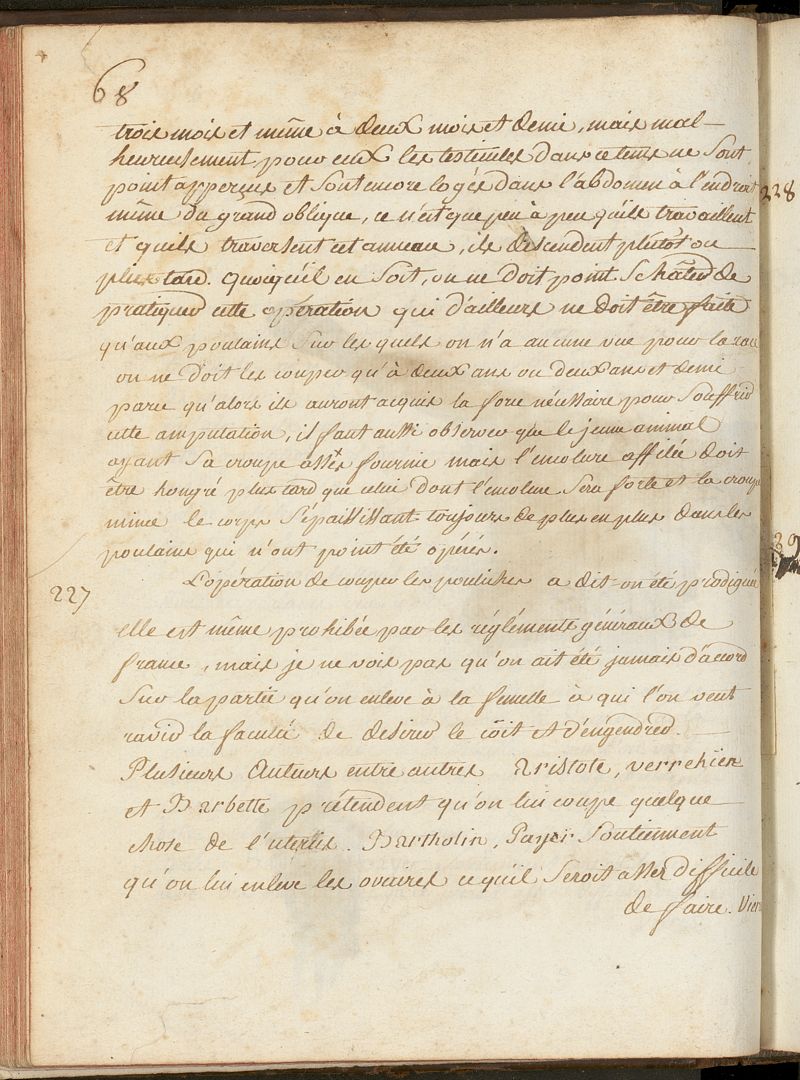 68
trois mois et même à deux mois et demi, mais mal-
heureusement pour eux les testicules dans ce tems ne sont
point apperçus et sont encore logés dans l'abdomen à l'endroit
même du grand oblique, ce n'est que peu à peu qu'ils travaillent
et qu'ils traversent cet anneau, ils descendent plutôt ou
plus tard. quoiqu'il en soit, on ne doit point se hâter de
pratiquer cette opération qui d'ailleurs ne doit être faite
qu'aux poulains sur les quels on n'a aucune vue pour la race
on ne doit les couper qu'à deux ans ou deux ans et demi
parce qu'alors ils auront acquis la force nécessaire pour souffrir
cette amputation, il faut aussi observer que le jeune animal
ayant sa croupe assés fournie mais l'encolure affilée doit
être hongré plus tard que celui dont l'encolure sera forte et la croupe
mince le corps s'épaississant toujours de plus en plus dans les
poulains qui n'ont point été opérés.
227 L'opération de couper les pouliches a dit-on été prodiguée
elle est même prohibée par les réglements généraux de
france, mais je ne vois pas qu'on ait été jamais d'accord
sur la partie qu'on enleve à la femelle à qui l'on veut
ravir la faculté de desirer le coït et d'engendrer.
Plusieurs Auteurs entre autres Aristote, verrehien
et Barbette prétendent qu'on lui coupe quelque
chose de l'uterus. Bartholin, Payer soutiennent
qu'on lui enleve les ovaires ce qu'il seroit assez difficile
de faire.
228